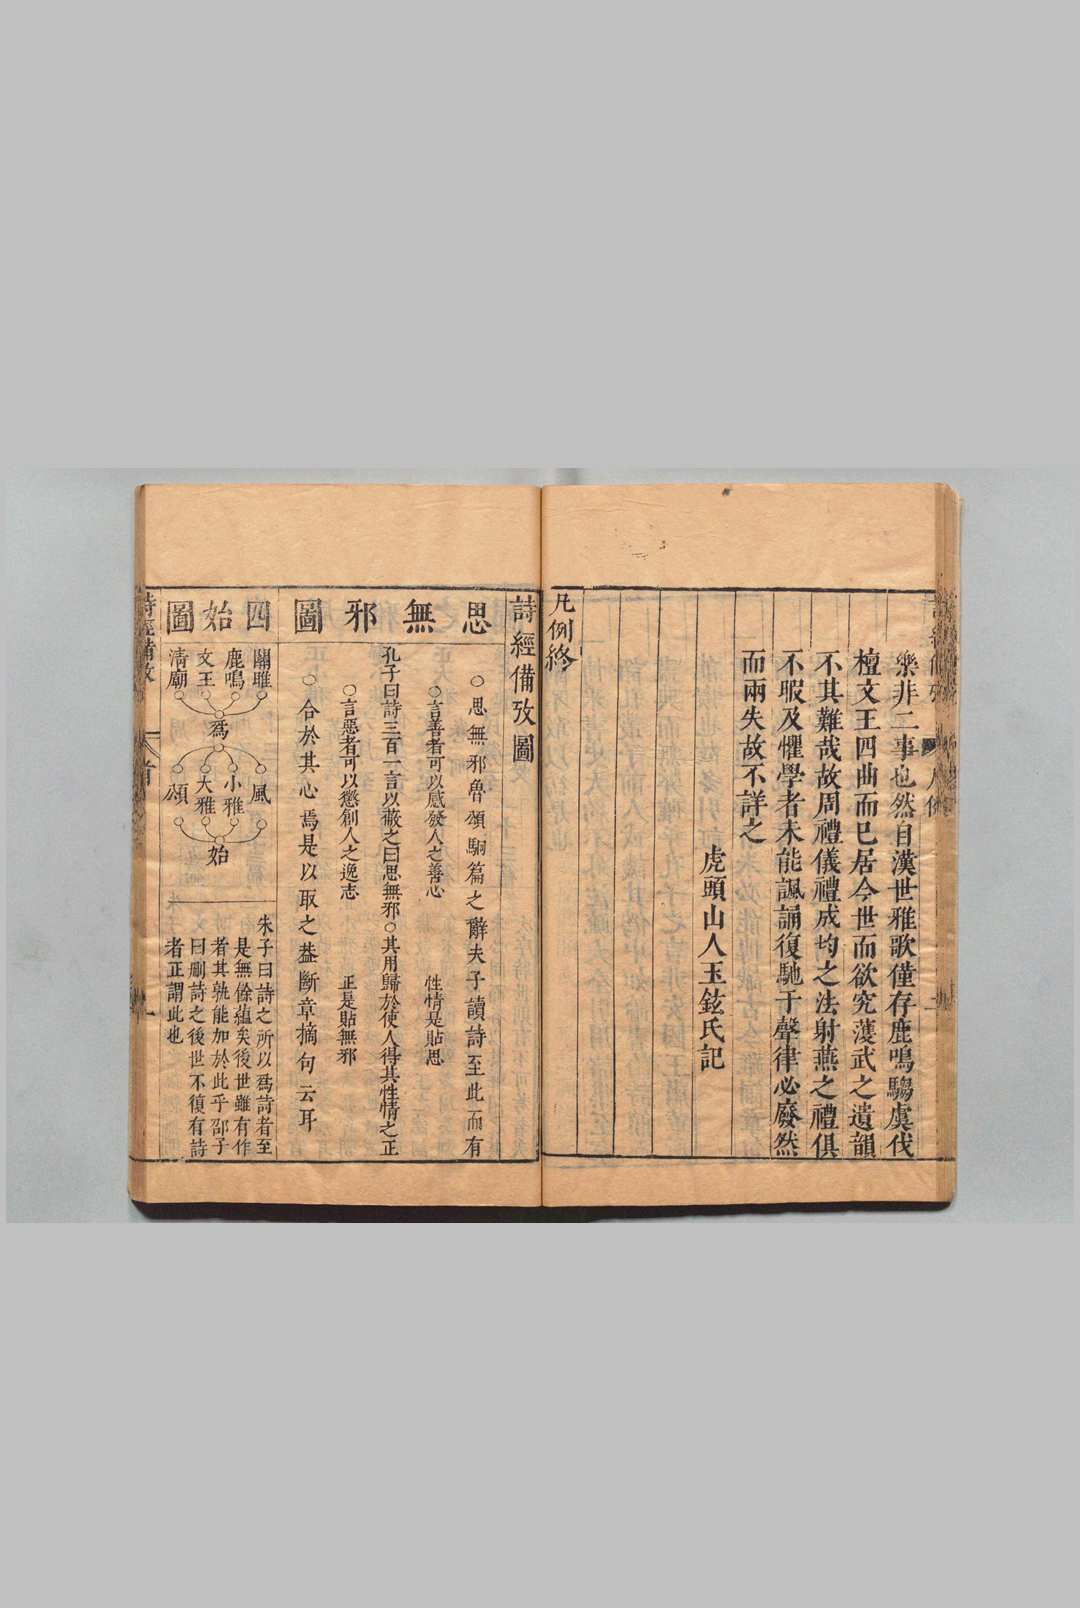 樂非二事也然自漢世雅歌僅存鹿鳴騶虞伐
檀文王四曲而已居今世而欲究濩武之遺韻
不其難哉故周禮儀禮成均之法射燕之禮俱
不暇及懼學者未能諷誦復馳于聲律必廢然
而兩失故不詳之
虎頭山人玉鉉氏記
凡例終
詩經備攷圖
思無邪圖
○思無邪魯頌駉篇之辭夫子讀詩至此而有
○言善者可以感發人之善心 性情是貼思
孔子曰詩三百一言以蔽之曰思無邪○其用歸於使人得其性情之正
○言惡者可以懲創人之逸志 正是貼無邪
○合於其心焉是以取之葢斷章摘句云耳
四始圖
關雎
鹿鳴
文王
清廟
爲
風
小雅
大雅
頌
始
朱子曰詩之所以爲詩者至
是無餘蘊矣後世雖有作
者其孰能加於此乎邵子
曰刪詩之後世不復有詩
者正謂此也
詩經備攷
首